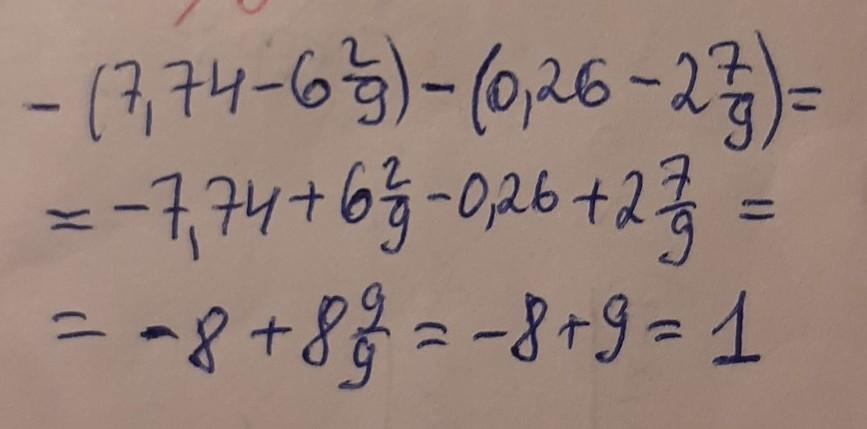 -(7,74-6 2/9)-(0,26-2 7/9)=
=-7,74+6 2/9-0,26+2 7/9=
=-8+8 9/9=-8+9=1